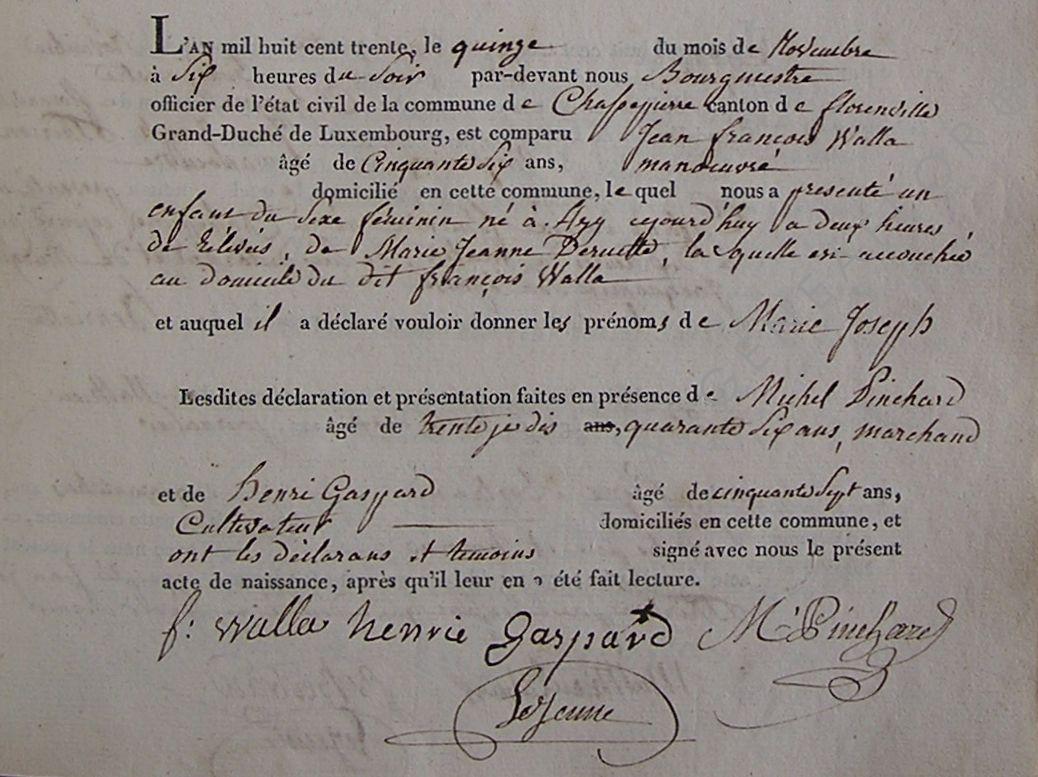 L'AN mil huit cent trente, le quinze du mois de Novembre
à Six heures du Soir par-devant nous Bourgmestre
officier de l'état civil de la commune de Chassepierre canton de florenville
Grand-Duché de Luxembourg, est comparu Jean françois Walla
âgé de Cinquante Six ans, manoeuvre
domicilié en cette commune, le quel nous a presenté un
enfant du Sexe féminin né à Azy cejourd'huy a deux heures
de relevés, de Marie Jeanne Deruette, la quelle est accouchée
au domicile du dit françois Walla
et auquel il a déclaré vouloir donner les prénoms de Marie Joseph
Lesdites déclaration et présentation faites en présence de Michel Pinchard
âgé de trente je dis ans, quarante Six ans, marchand
et de henri Gaspard âgé de cinquante Sept ans,
Cultivateur domiciliés en cette commune, et
ont les déclarans et temoins signé avec nous le présent
acte de naissance, après qu'il leur en a été fait lecture.
f: walla henrie Gaspard M Pinchard
LeJeune